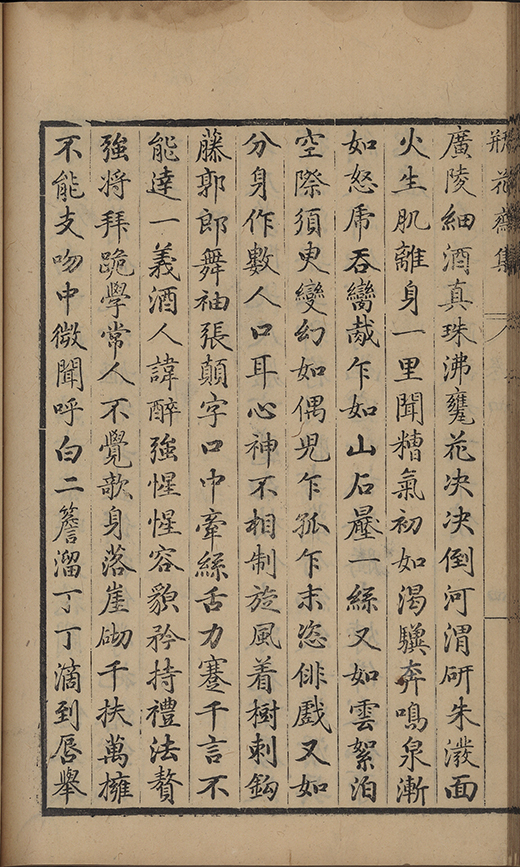 瓶花齋集
廣陵細酒真珠沸甕花决决倒河渭研朱潑面
火生肌離身一里聞糟氣初如渴驥奔鳴泉漸
如怒虎吞蠻㦲乍如山石㠥一絲又如雲絮泊
空際須臾變幻如偶兒乍孤乍末恣俳戲又如
分身作數人口耳心神不相制旋風着樹刺鈎
藤郭郎舞袖張顛字口中牽絲舌力蹇千言不
能達一義酒人諱醉強惺惺容貌矜持禮法贅
強將拜跪學常人不覺歌身落崖砌千扶萬擁
不能支吻中微聞呼白二簷溜丁丁滴到唇舉